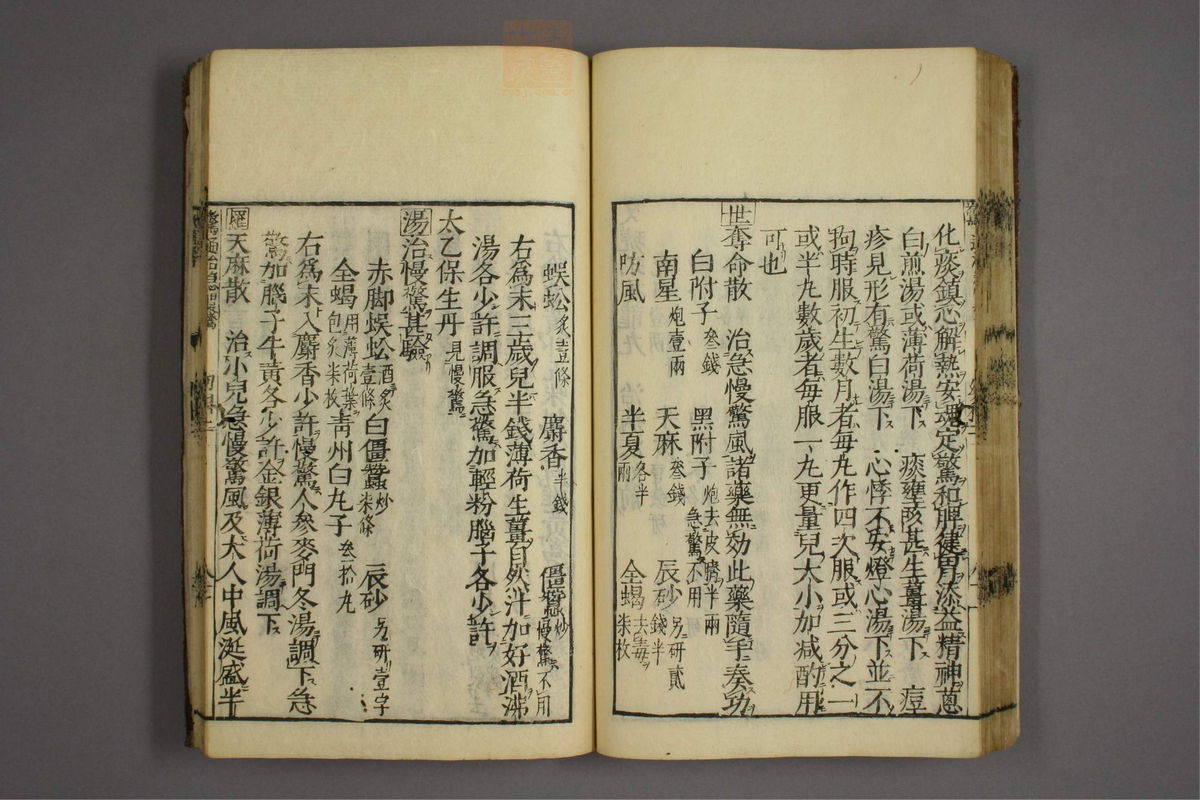 化痰鎮心解熱安魂定驚和脾健胃添益精神蔥
白煎湯或薄荷湯下 痰壅咳甚生薑湯下 痘
疹見形有驚白湯下 心悸不安燈心湯下並不
狗時服初生數月者每丸作四次服或三分之一
或半丸數歲者每服一丸更量兒大小加減酌用
可也
世 奪命散 治急慢驚風諸藥無効此藥隨手奏功
白附子 叄錢 黑附子 炮去皮臍半兩急驚不用
南星 炮壹兩 天麻 叄錢 辰砂 另研貳錢半
防風 半夏 各半兩 全蝎 去毒柒枚
蜈蚣 炙壹條 麝香 半錢 僵蠶 炒慢驚不用
右爲末三歲兒半錢薄荷生薑自然汁加好酒沸
湯各少許調服急驚加輕粉腦子各少許
太乙保生丹 見慢驚
湯 治慢驚甚驗
赤脚蜈蚣 酒炙壹條 白僵蠶 炒柒條 辰砂 另研壹字
全蝎 用薄荷葉包炙柒枚 青州白丸子 叄拾丸
右爲末入麝香少許慢驚人參麥門冬湯調下急
驚加腦子牛黃各少許金銀薄荷湯調下
羅 天麻散 治小兒急慢驚風及大人中風涎盛半